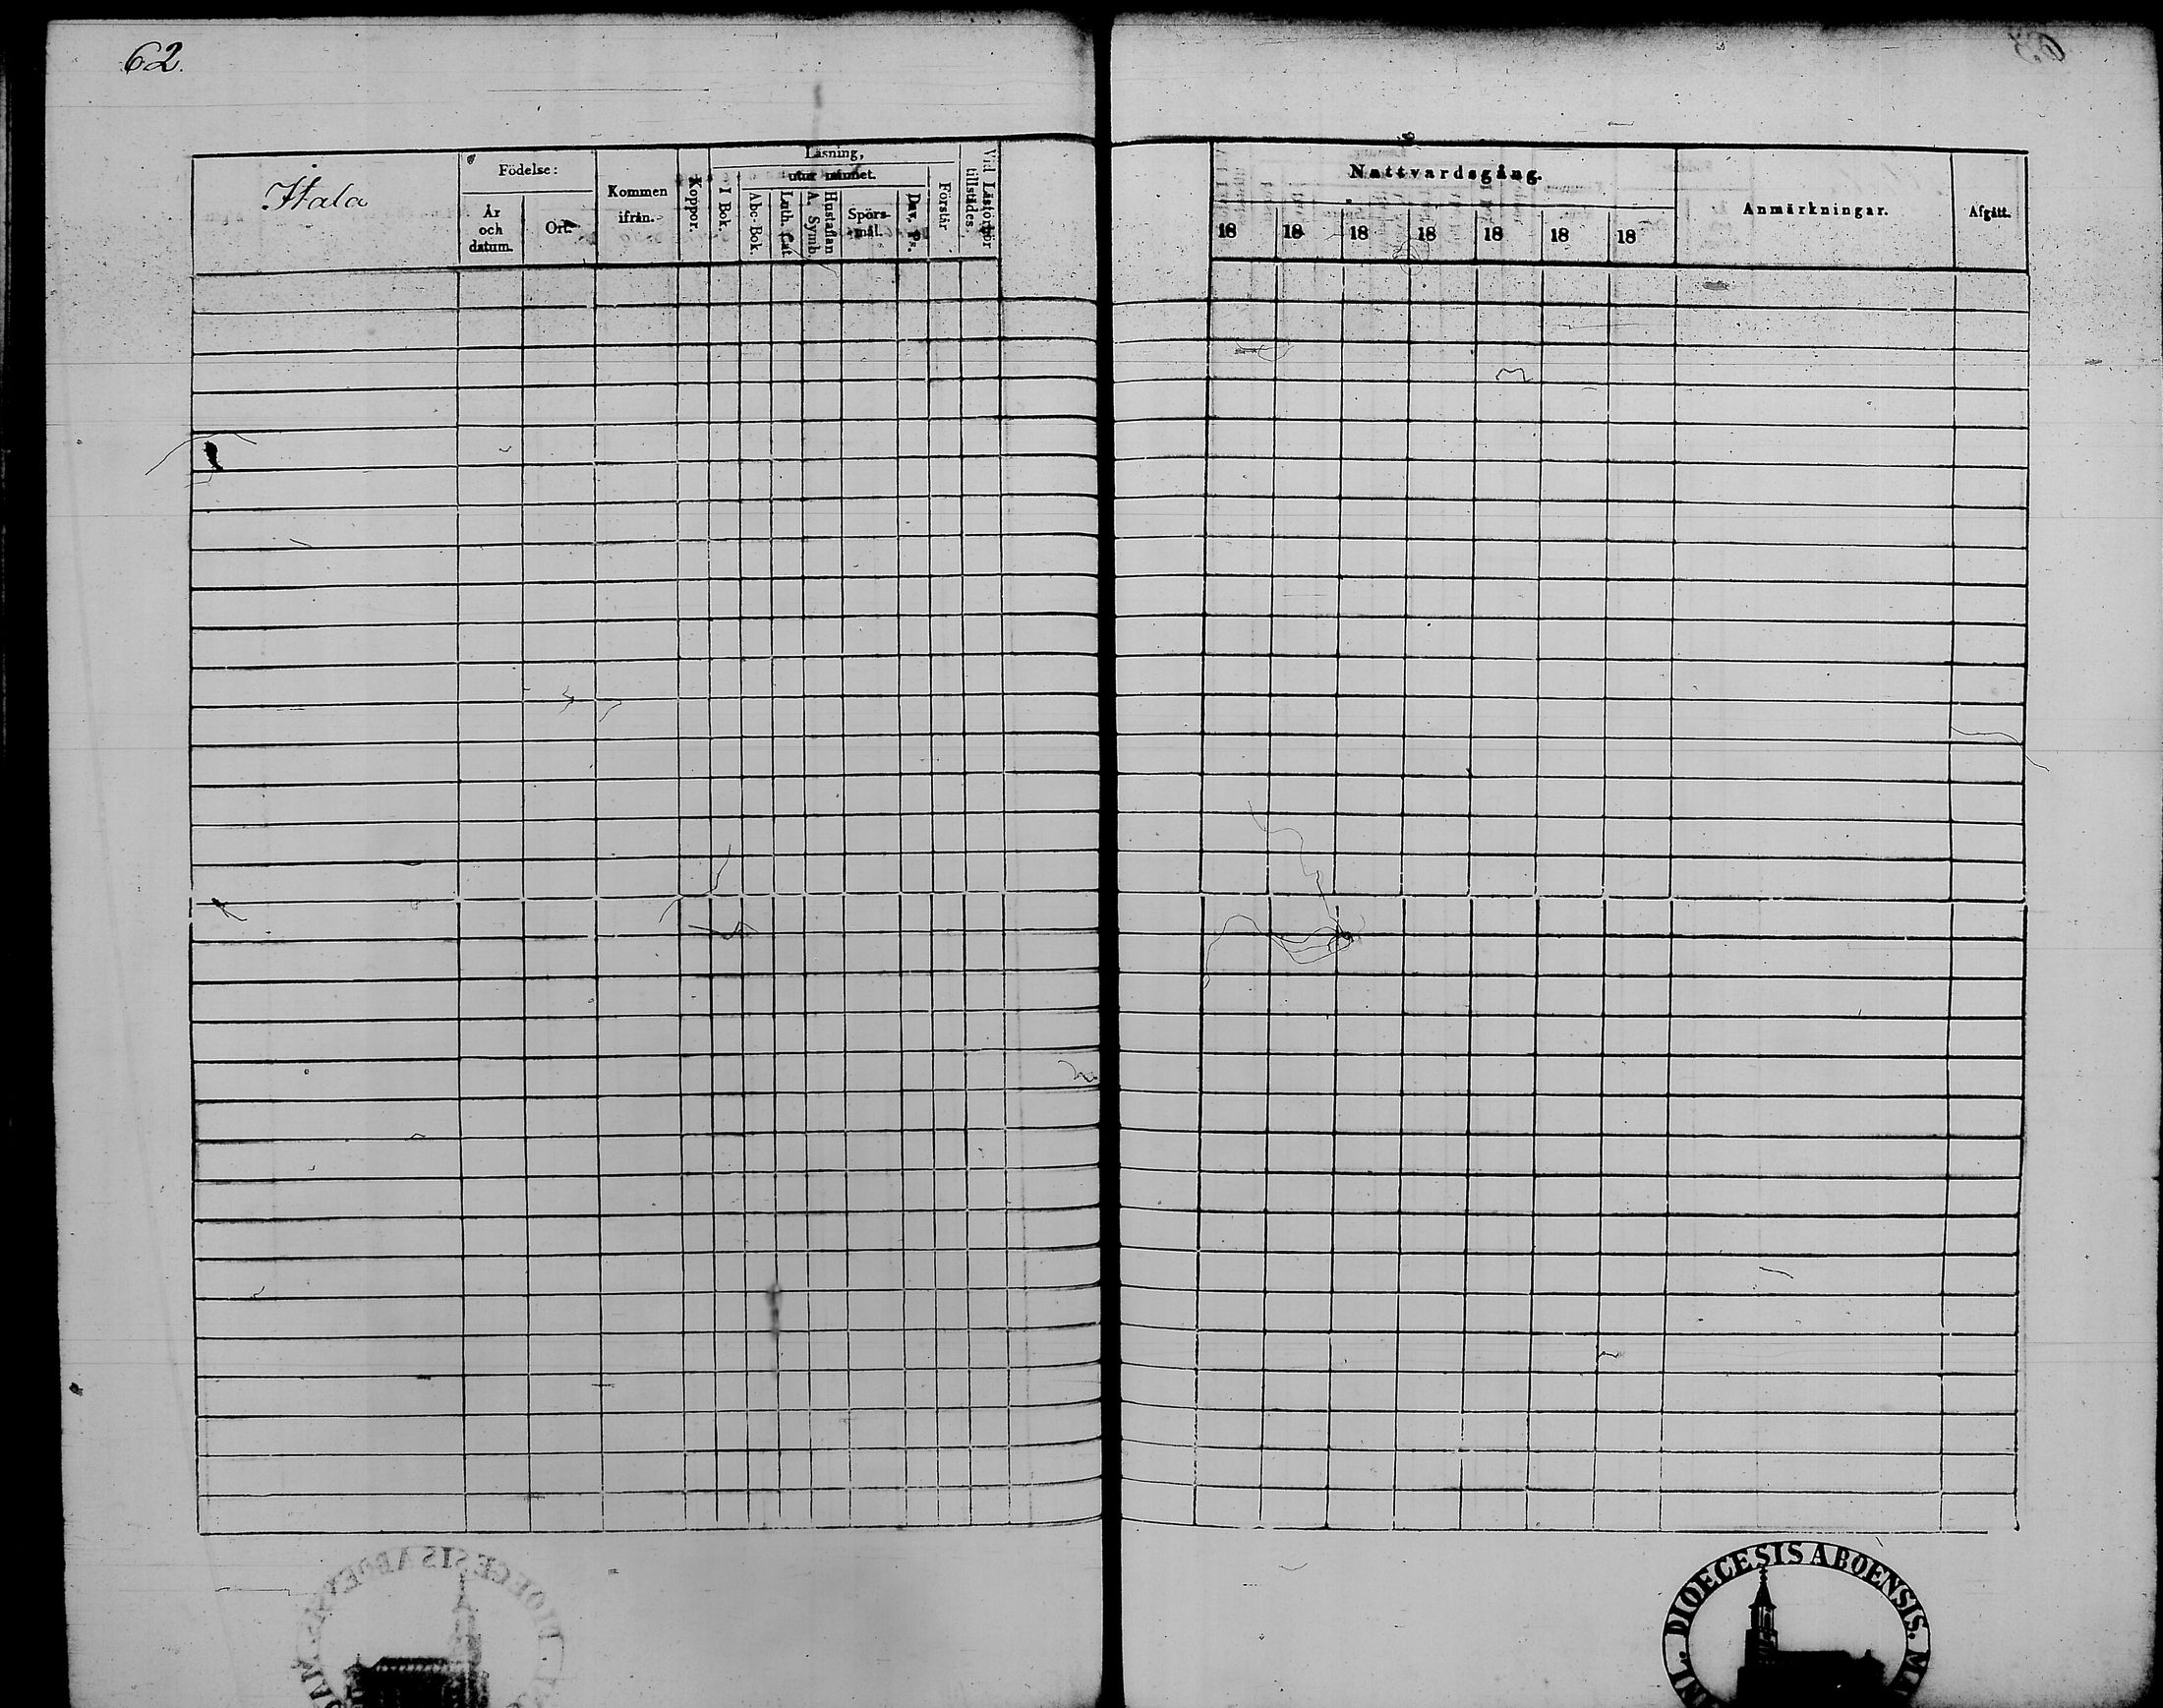 62.
Itala
Födelse:
År
och
datum.
Ort.
Kommen
ifrån.
Koppor.
Läsning,
utur minnet.
I Bok.
Abc-Bok.
Luth. Cat
Hustaflan
A. Symb.
Spörs-
mål.
Dav. Ps.
Förstår
Vid Läsförhör
tillstädes
Nattvardsgång.
18 18 18 18 18 18 18
Anmärkningar.
Afgått.
DIOECESIS ABOENSIS.